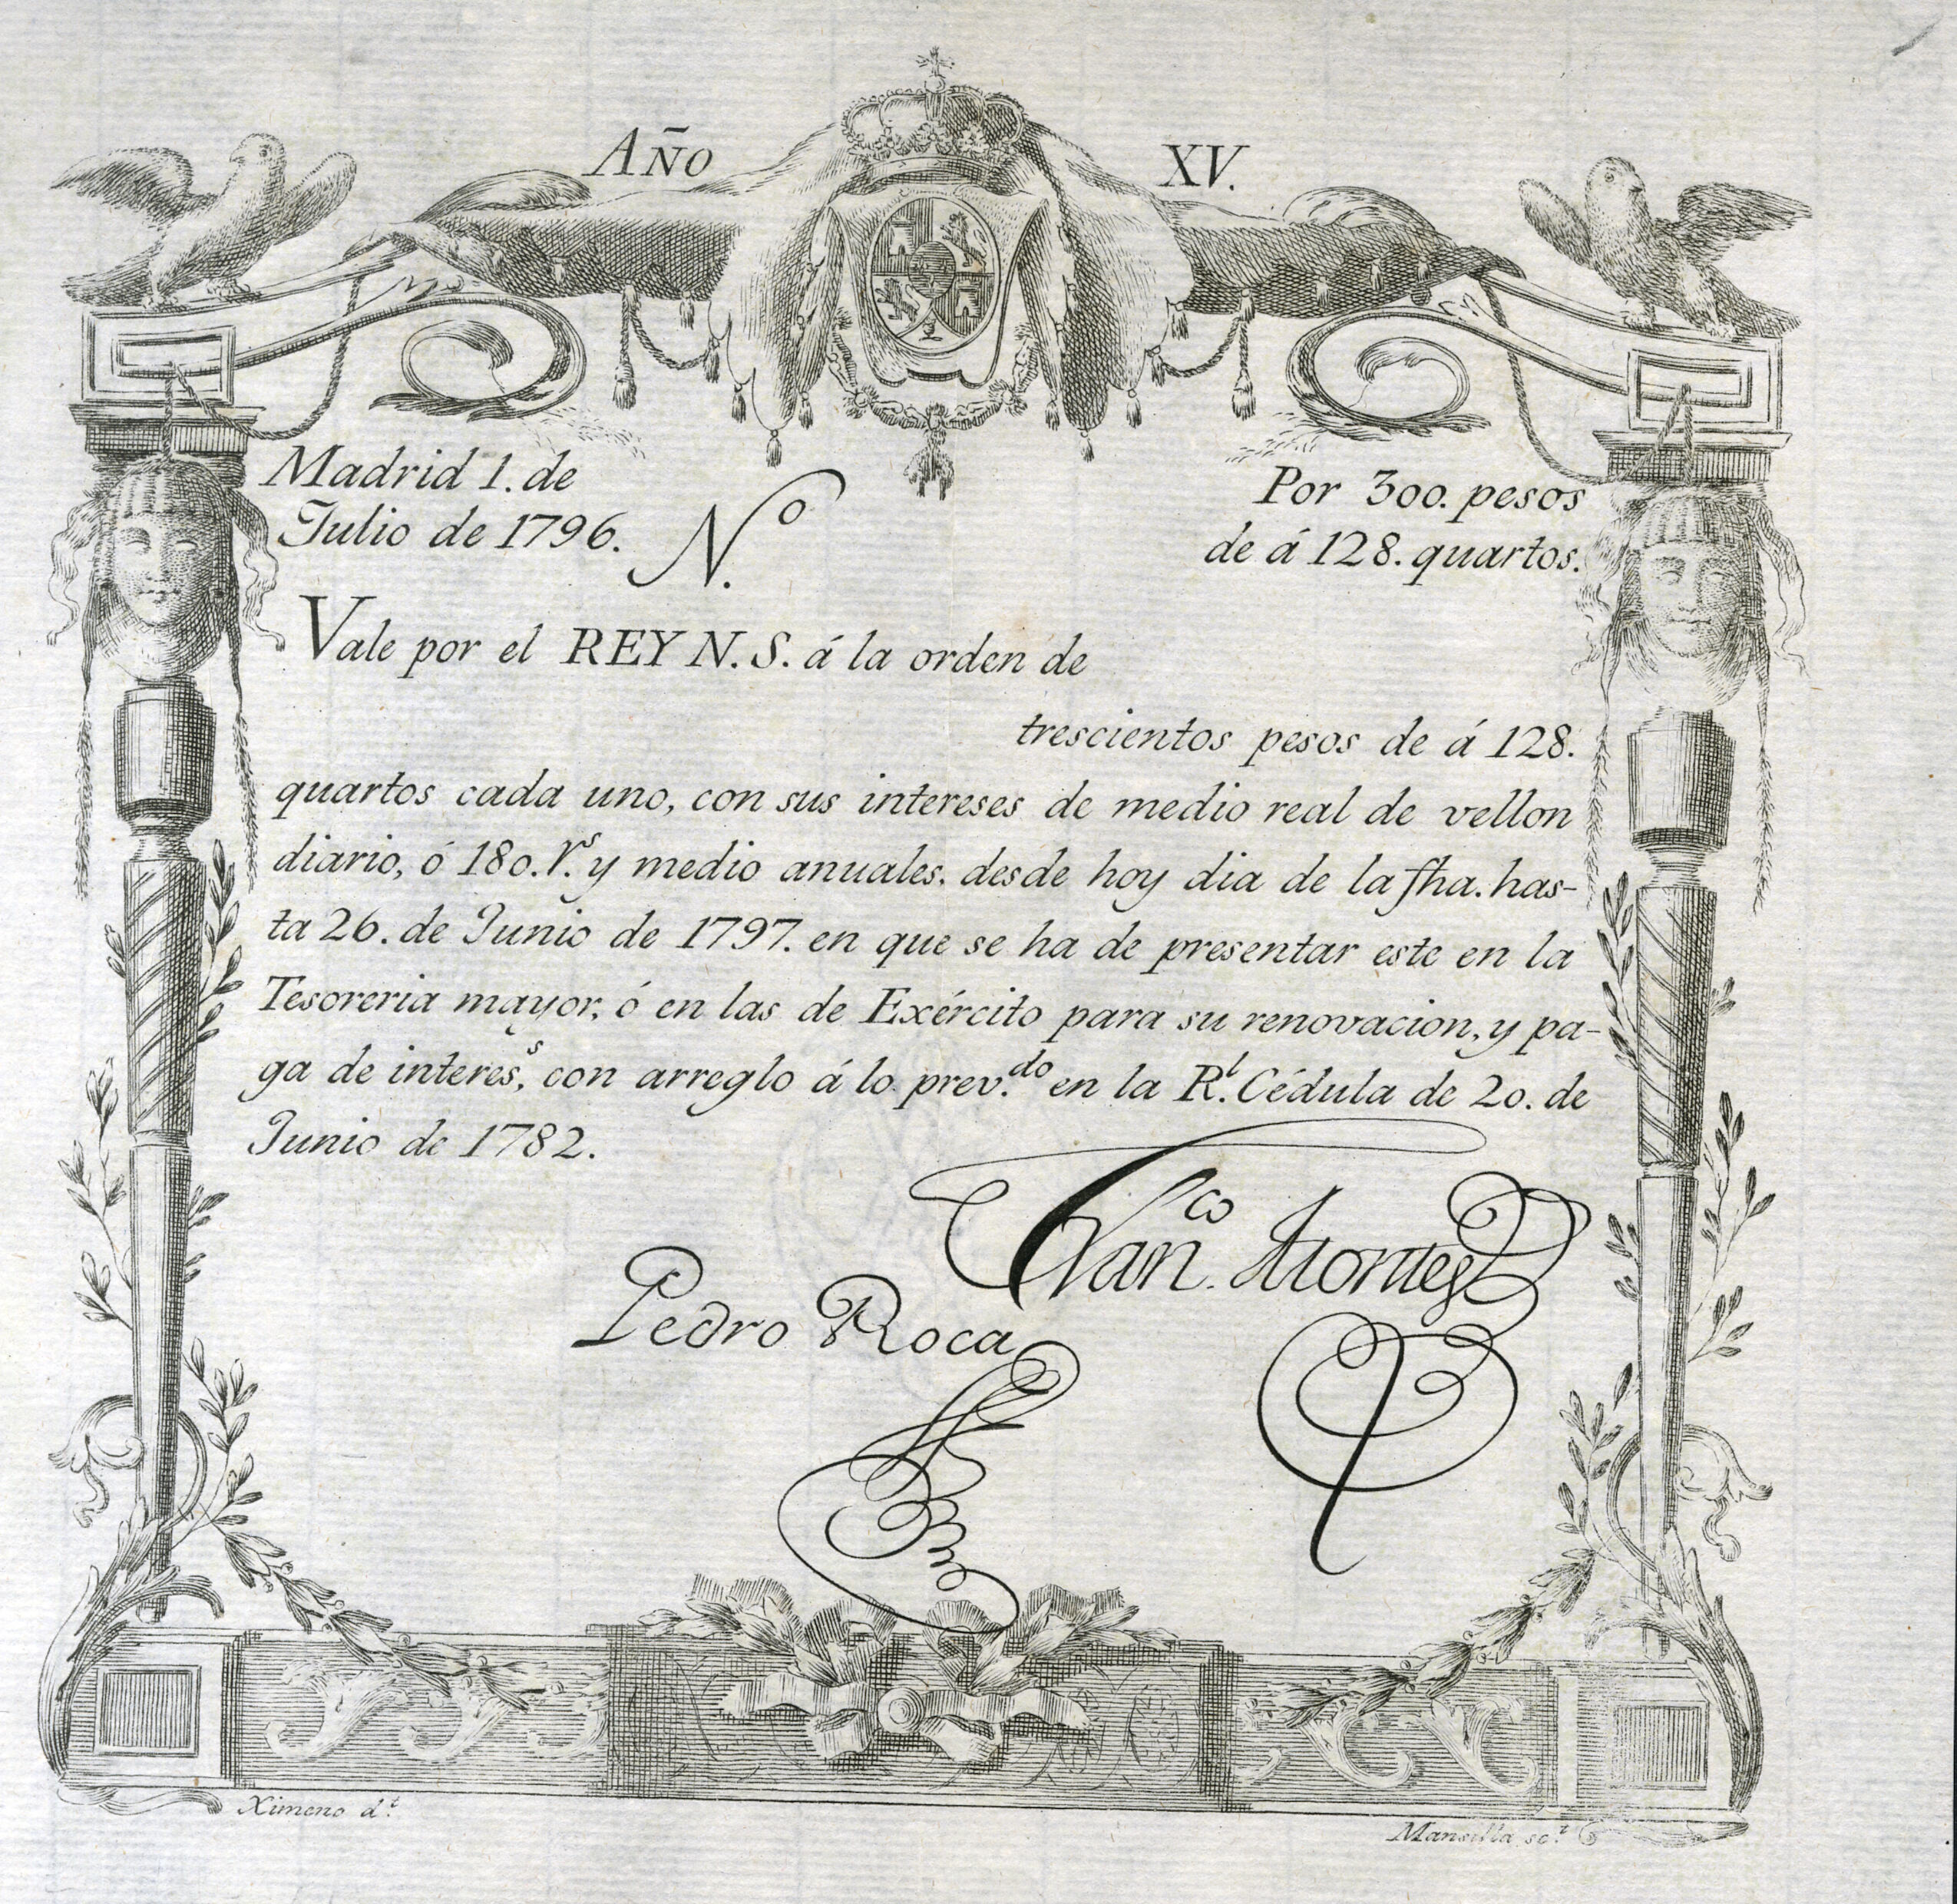 AÑO XV.
Madrid 1. de
Julio de 1796. N.º
Por 300. pesos
de á 128. quartos.
Vale por el REY N. S. á la orden de
trescientos pesos de á 128.
quartos cada uno, con sus intereses de medio real de vellon
diario, ó 180. r.s y medio anuales. desde hoy dia de la fha. has-
ta 26. de Junio de 1797. en que se ha de presentar este en la
Tesoreria mayor, ó en las de Exército para su renovacion, y pa-
ga de interes.s, con arreglo á lo prev.do en la R.l Cédula de 20. de
Junio de 1782.
Fran.co Montes
Pedro Roca
Ximeno d.t
Mansilla sc.t